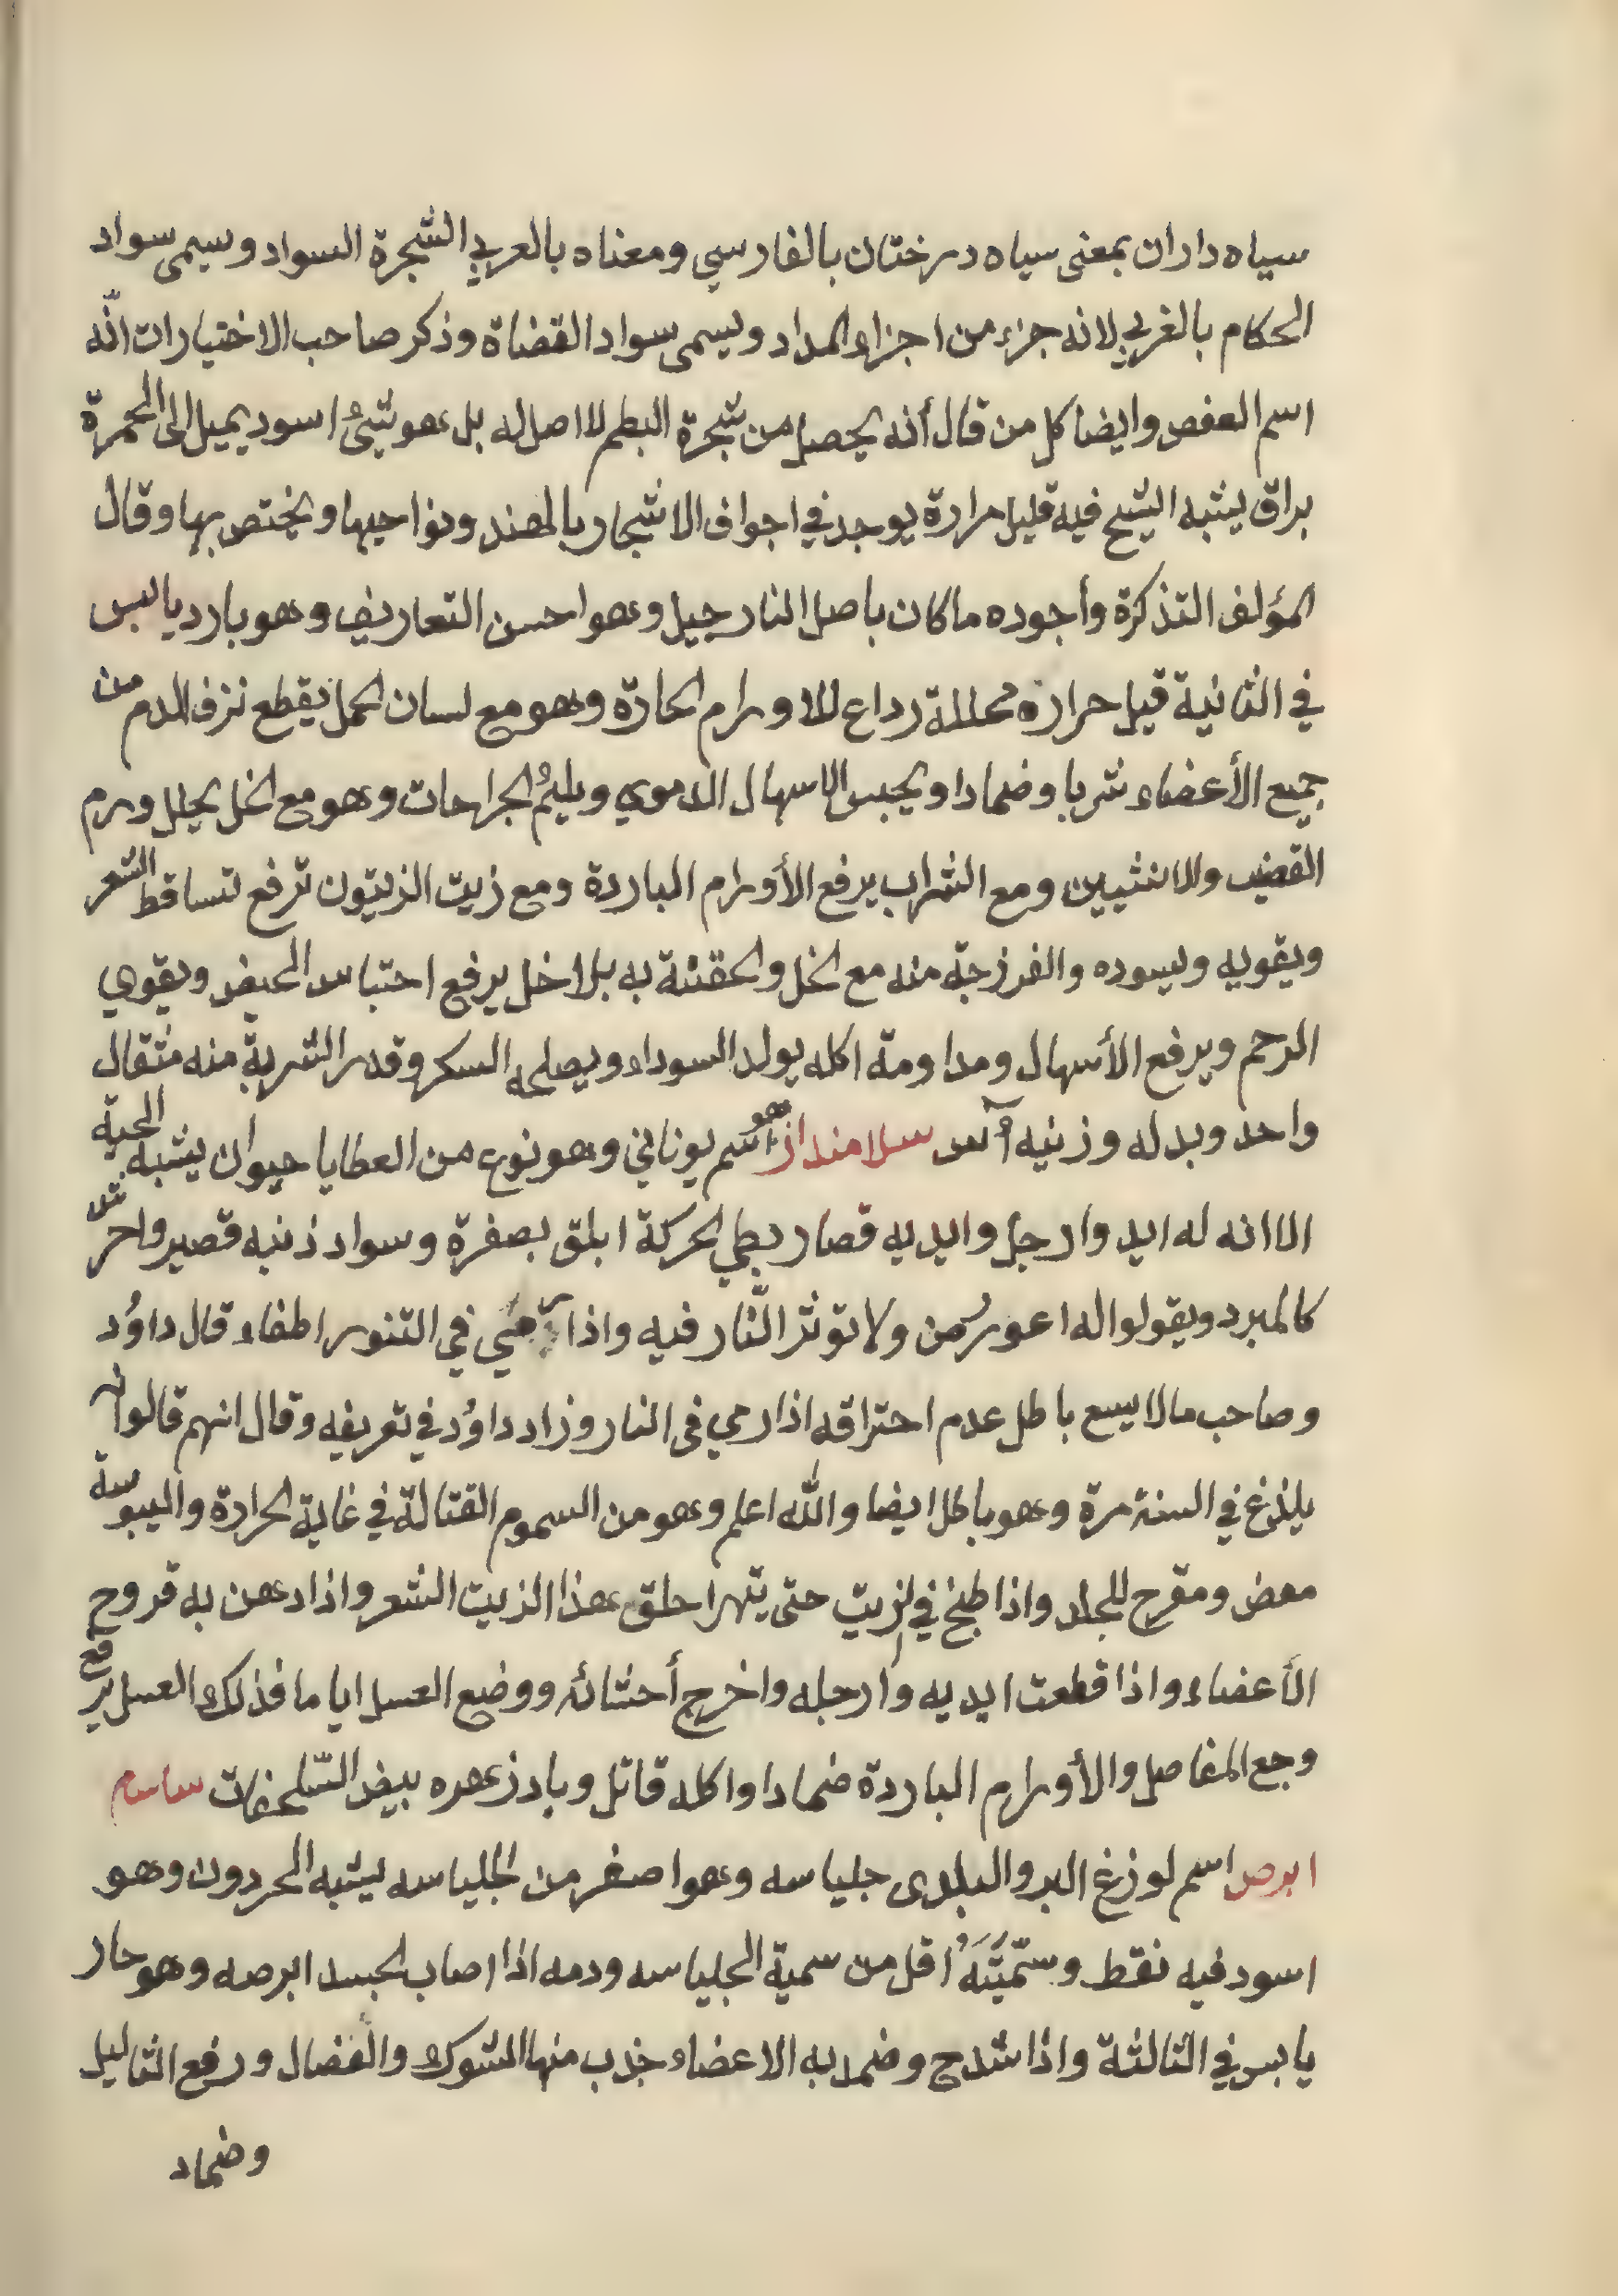 سياه داران بمعنى سياه درختان بالفارسي ومعناه بالعربي الشجرة السواد ويسمى سواد
الحكام بالغربي لانه جزء من اجزاء المداد ويسمى سواد القضاة وذكر صاحب الاختيارات انّه
اسم العفص وايضا كل من قال أنه يحصل من شجرة البطم لا اصل له بل هو شيئ اسود يميل الى الحمرة
براق يشبه الشيح فيه قليل مرارة يوجد في اجواف الاشجار بالهند ونواحيها ويختص بها وقال
المؤلف التذكرة وأجوده ما كان باصل النارجيل وهو احسن التعاريف وهو بارد يابس
في الثانية قيل حرارة محللة رداع للاورام الحارة وهو مع لسان الحمل يقطع نزف الدم من
جميع الأعضاء شربا وضمادا ويحبس الاسهال الدموي ويليمُ الجراحات وهو مع الخل يحلل ورم
القضيب والانثيين ومع الشراب يرفع الأورام الباردة ومع زيت الزيتون ترفع تساقط الشعر
ويقويه ويسوده والفرزجة منه مع الخل والحقنة به بلا خل يرفع احتباس الحيض ويقوي
الرحم ويرفع الأسهال ومداومة اكله يولد السوداء ويصلحه السكر وقدر الشربة منه مثقال
واحد وبدله وزنيه آس سلامندار هو اسم يوناني وهو نوع من العظايا حيوان يشبه الحية
الا انه له ايد وارجل وايديه قصار بطي الحركة ابلق بصفرة وسواد ذنبه قصير واحرش
كالمبرد ويقولوا له اعور سمن ولا تؤثر النّار فيه واذا رمي في التنور اطفاء قال داوُد
وصاحب مالا يسع باطل عدم احتراقه اذا رمي في النار وزاد داوُد في تعريفه وقال انهم قالوا انه
يلذغ في السنة مرة وهو باطل ايضا والله اعلم وهو من السموم القتالة في غاية الحرارة واليبوسة
معض ومقرح للجلد واذا طبخ في الزيت حتى يتهرا حلق هذا الزيت الشعر واذا دهن به قروح
الأعضاء واذا قطعت ايديه وارجله واخرج أحشائه ووضع العسل اياما فذلك العسل يرفع
وجع المفاصل والأورام الباردة ضمادا واكله قاتل وبادزهره بيض السّلحفات سام
ابرص اسم لوزغ البر والبلدى جلياسه وهو اصغر من الجلياسه يشبه الحردون وهو
اسود فيه نقط وسّمّيَّتَهُ اقل من سمية الجلياسه ودمه اذا اصاب الجسد ابرصه وهو حار
يابس في الثالثة واذا شدح وضمد به الاعضاء جذب منها الشوك والفضال ورفع الثاليل
وضماد